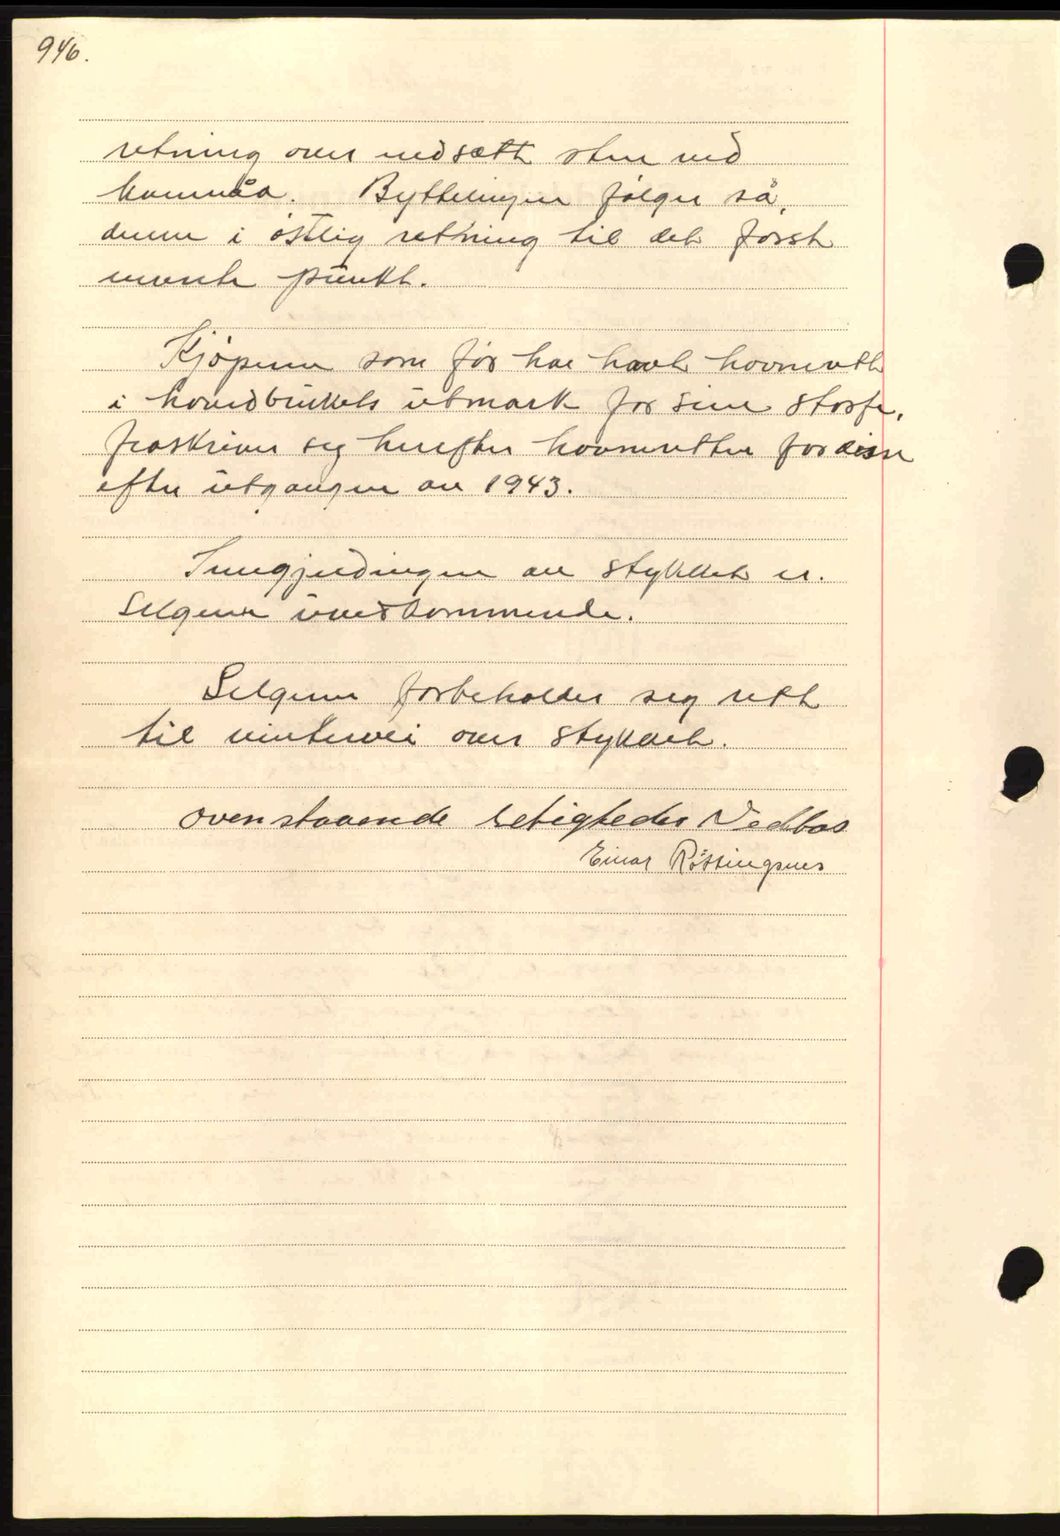 946.
retning over nedsatt sten ved
Byttelinjen følger så,
denne i østlig retning til det først
nevnte punkt.
Kjøperen som før har havt havnerett
i hovedbrukets utmark for sine storfe,
fraskriver seg herefter havneretten for disse
efter utgangen av 1943.
Inngjerdingen av stykket er.
Selgeren uvedkommende.
Selgeren forbeholder seg rett
til vintervei over stykket.
ovenstaaende
Einar Røttingsnes